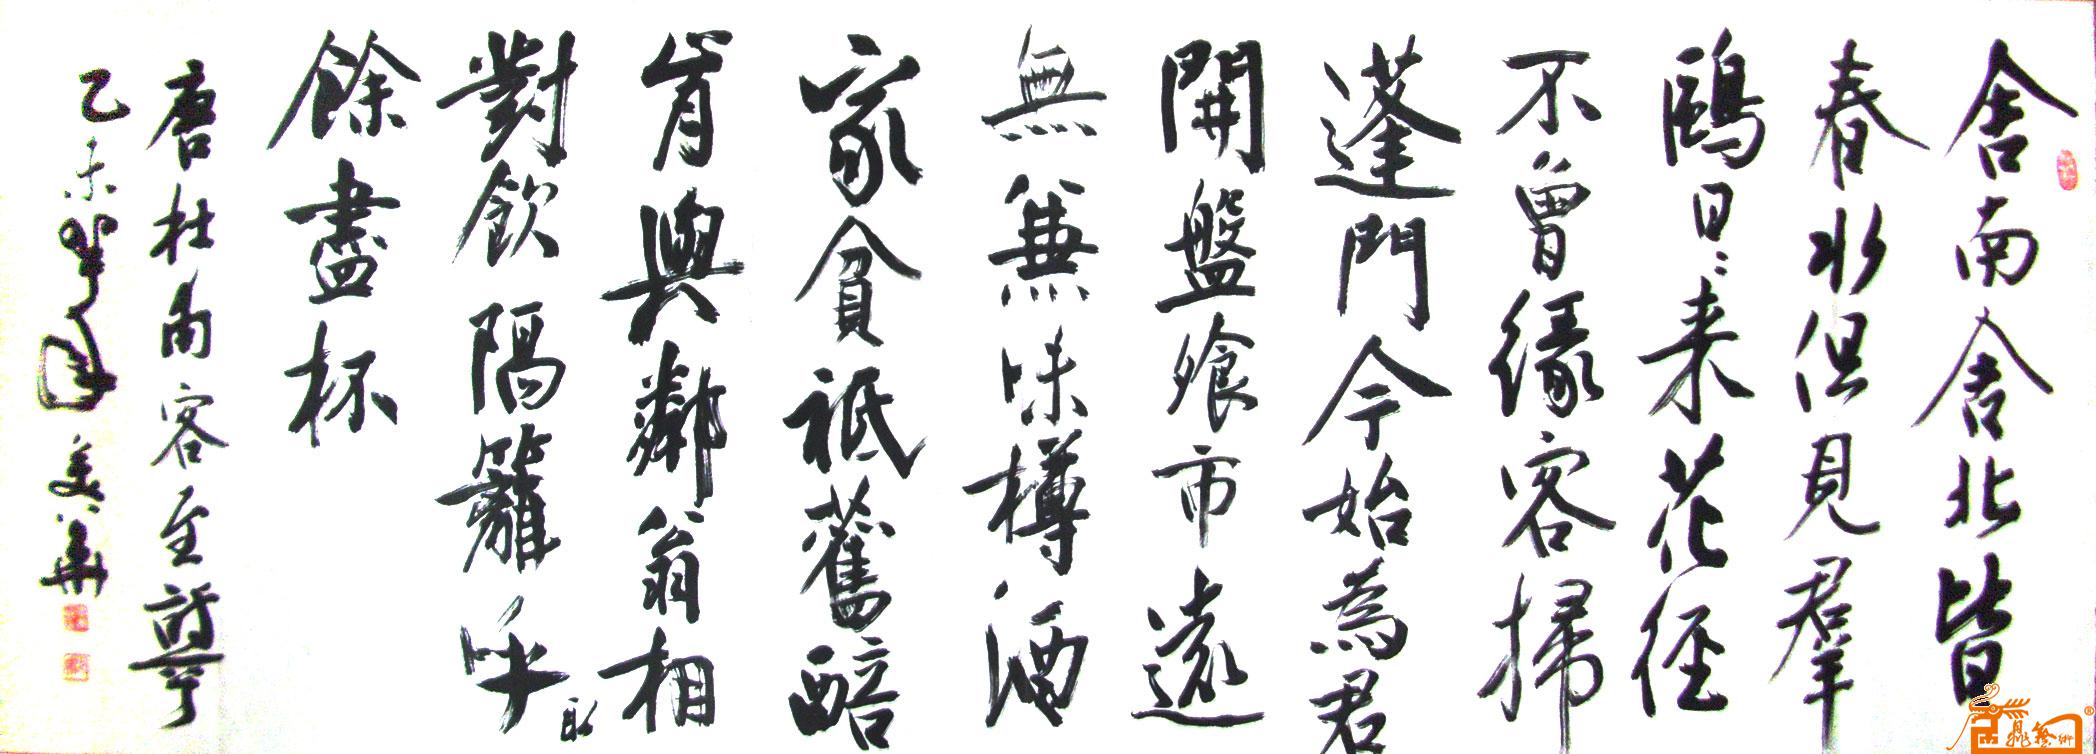 舍南舍北皆
春水但見群
鷗日々来花徑
不曾緣客掃
蓬門今始為君
開盤飧市遠
無兼味樽酒
家貧衹舊醅
肯與鄰翁相
對飲隔籬呼
取
餘盡杯
唐杜甫客至詩
乙未
美華